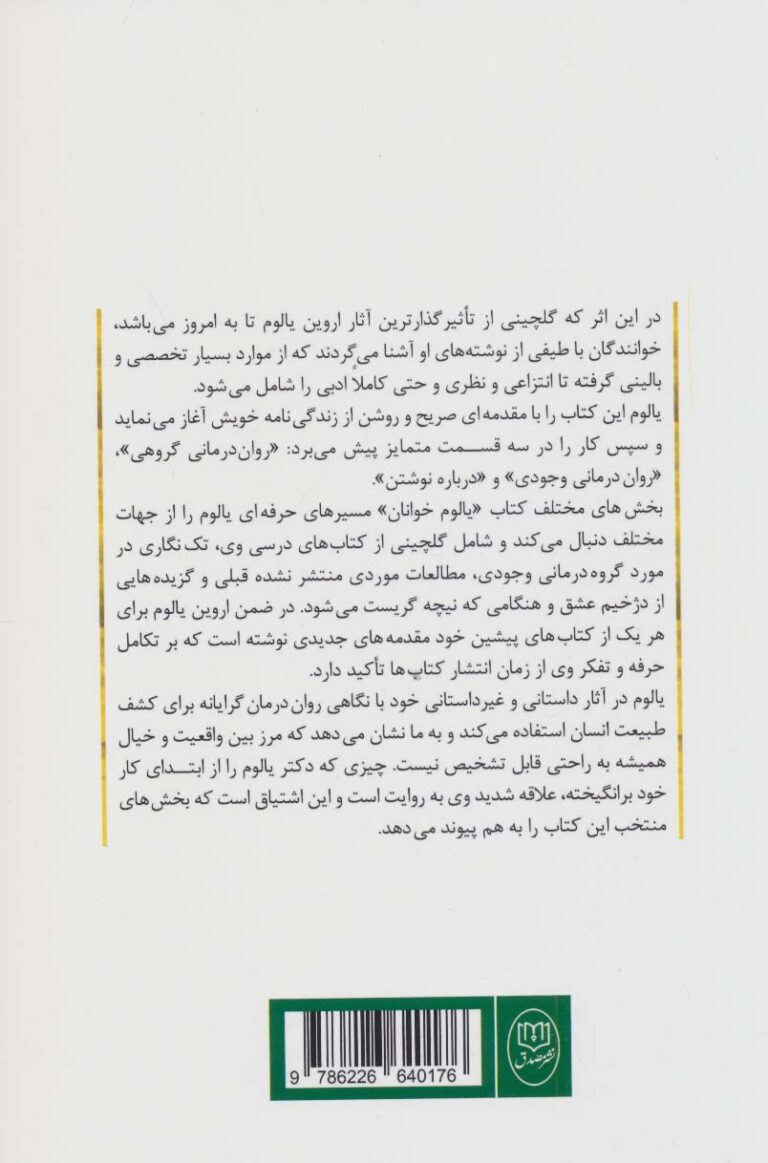 در این اثر که گلچینی از تأثیرگذارترین آثار اروین یالوم تا به امروز می‌باشد،
خوانندگان با طیفی از نوشته‌های او آشنا می‌گردند که از موارد بسیار تخصصی و
بالینی گرفته تا انتزاعی و نظری و حتی کاملاً ادبی را شامل می‌شود.
یالوم این کتاب را با مقدمه‌ای صریح و روشن از زندگی‌نامه خویش آغاز می‌نماید
و سپس کار را در سه قسمت متمایز پیش می‌برد: «روان‌درمانی گروهی»،
«روان‌درمانی وجودی» و «درباره نوشتن».
بخش‌های مختلف کتاب «یالوم خوانان» مسیرهای حرفه‌ای یالوم را از جهات
مختلف دنبال می‌کند و شامل گلچینی از کتاب‌های درسی وی، تک‌نگاری در
مورد گروه‌درمانی وجودی، مطالعات موردی منتشر نشده قبلی و گزیده‌هایی
از دژخیم عشق و هنگامی که نیچه گریست می‌شود. در ضمن اروین یالوم برای
هر یک از کتاب‌های پیشین خود مقدمه‌های جدیدی نوشته است که بر تکامل
حرفه و تفکر وی از زمان انتشار کتاب‌ها تأکید دارد.
یالوم در آثار داستانی و غیرداستانی خود با نگاهی روان‌درمان‌گرایانه برای کشف
طبیعت انسان استفاده می‌کند و به ما نشان می‌دهد که مرز بین واقعیت و خیال
همیشه به راحتی قابل تشخیص نیست. چیزی که دکتر یالوم را از ابتدای کار
خود برانگیخته، علاقه شدید وی به روایت است و این اشتیاق است که بخش‌های
منتخب این کتاب را به هم پیوند می‌دهد.
9 786226 640176
نشر مصدق